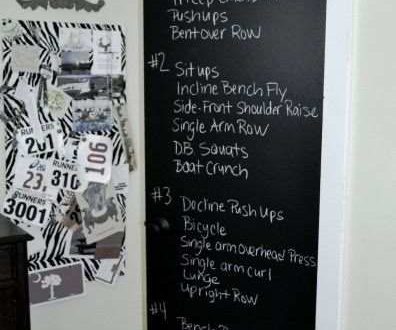 Pushups
Bentover Row
#2 Situps
Incline Bench Fly
Side-Front Shoulder Raise
Single Arm Row
DB Squats
Boat Crunch
#3 Decline Push Ups
Bicycle
Single arm overhead Press
Single arm curl
Lunge
Upright Row
#4
RUNNERS
201
RUNNERS
23
RUNNERS
310
106
RUNNERS
3001